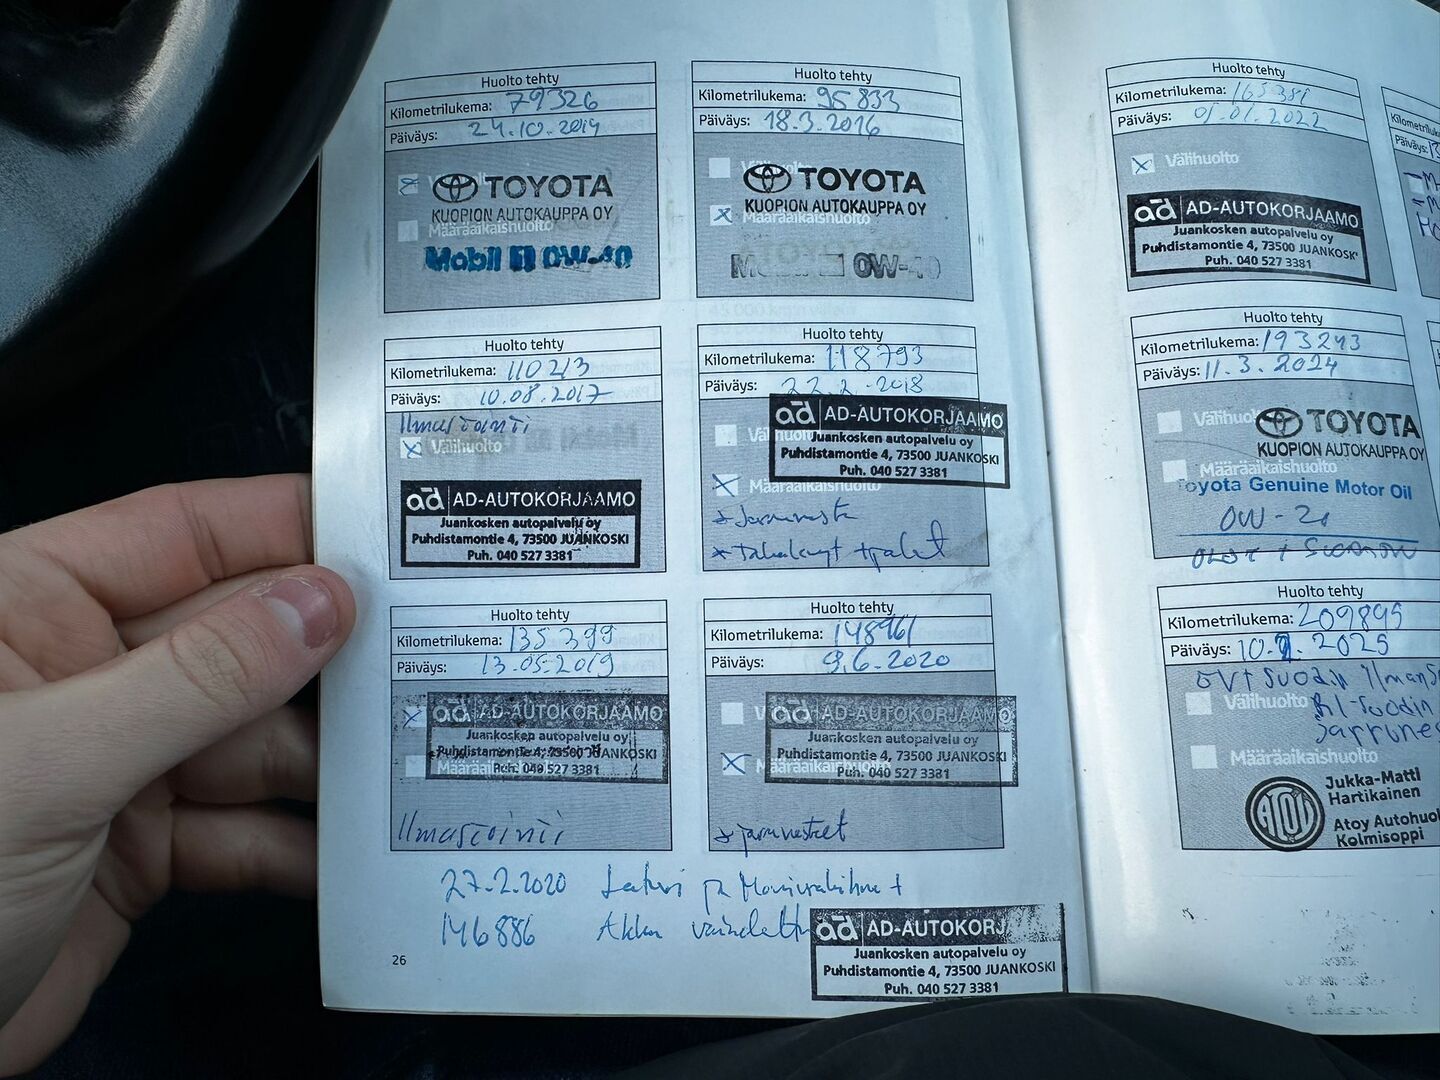 Huolto tehty
Kilometrilukema: 79326
Päiväys: 24.10.2014
TOYOTA
KUOPION AUTOKAUPPA OY
Määräaikaishuolto
Mobil 1 0W-40
Huolto tehty
Kilometrilukema: 95833
Päiväys: 18.3.2016
TOYOTA
KUOPION AUTOKAUPPA OY
Määräaikaishuolto
Mobil 1 0W-40
Huolto tehty
Kilometrilukema: 110213
Päiväys: 10.08.2017
Ilmastointi
Välihuolto
ad AD-AUTOKORJAAMO
Juankosken autopalvelu oy
Puhdistamontie 4, 73500 JUANKOSKI
Puh. 040 527 3381
Huolto tehty
Kilometrilukema: 118793
Päiväys: 22.2.2018
Välihuolto
ad AD-AUTOKORJAAMO
Juankosken autopalvelu oy
Puhdistamontie 4, 73500 JUANKOSKI
Puh. 040 527 3381
Määräaikaishuolto
* Jarruneste
Huolto tehty
Kilometrilukema: 135399
Päiväys: 13.05.2019
ad AD-AUTOKORJAAMO
Juankosken autopalvelu oy
Puhdistamontie 4, 73500 JUANKOSKI
Puh. 040 527 3381
Ilmastointi
Huolto tehty
Kilometrilukema: 148961
Päiväys: 9.6.2020
ad AD-AUTOKORJAAMO
Juankosken autopalvelu oy
Puhdistamontie 4, 73500 JUANKOSKI
Puh. 040 527 3381
Määräaikaishuolto
* jarrunesteet
27.2.2020 Laturi ja Moniurahihnat
146886 Akku vaihdettu
ad AD-AUTOKORJ
Juankosken autopalvelu oy
Puhdistamontie 4, 73500 JUANKOSKI
Puh. 040 527 3381
26
Huolto tehty
Kilometrilukema: 165381
Päiväys: 2022
Välihuolto
ad AD-AUTOKORJAAMO
Juankosken autopalvelu oy
Puhdistamontie 4, 73500 JUANKOSK
Puh. 040 527 3381
Huolto tehty
Kilometrilukema: 193243
Päiväys: 11.3.2024
Välihuolto
TOYOTA
KUOPION AUTOKAUPPA OY
Määräaikaishuolto
Toyota Genuine Motor Oil
0W-20
Huolto tehty
Kilometrilukema: 209895
Päiväys: 2025
Suodin Ilmans
Välihuolto
Ri-Suodin
Jarrunes
Määräaikaishuolto
ATOY
Jukka-Matti
Hartikainen
Atoy Autohuol
Kolmisoppi
Kilometriluk
Päiväys: